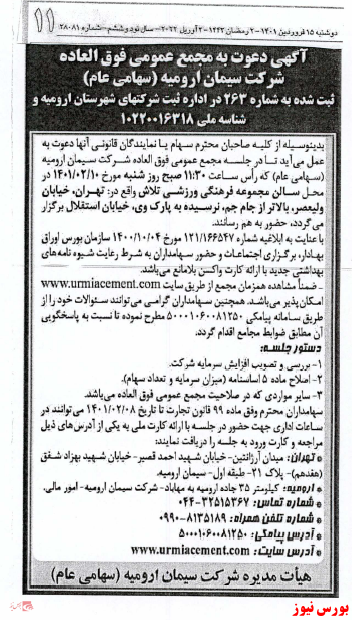 دوشنبه ۱۵ فروردین ۱۴۰۱-۲ رمضان ۱۴۴۳-۴ آوریل ۲۰۲۲-سال نود و ششم-شماره ۲۸۰۸۱
۱۱
آگهی دعوت به مجمع عمومی فوق العاده
شرکت سیمان ارومیه (سهامی عام)
ثبت شده به شماره ۲۶۳ در اداره ثبت شرکتهای شهرستان ارومیه و
شناسه ملی ۱۰۲۲۰۰۱۶۳۱۸
بدینوسیله از کلیه صاحبان محترم سهام یا نمایندگان قانونی آنها دعوت به
عمل می‌آید تا در جلسه مجمع عمومی فوق العاده شرکت سیمان ارومیه
(سهامی عام) که رأس ساعت ۱۱:۳۰ صبح روز شنبه مورخ ۱۴۰۱/۰۲/۱۰ در
محل سالن مجموعه فرهنگی ورزشی تلاش واقع در: تهران، خیابان
ولیعصر، بالاتر از جام جم، نرسیده به پارک وی، خیابان استقلال برگزار
می‌گردد، حضور به هم رسانند.
با عنایت به ابلاغیه شماره ۱۲۱/۱۶۶۵۴۷ مورخ ۱۴۰۰/۱۰/۰۴ سازمان بورس اوراق
بهادار، برگزاری اجتماعات و حضور سهامداران به شرط رعایت شیوه نامه‌های
بهداشتی جدید با ارائه کارت واکسن بلامانع می‌باشد.
- ضمناً مشاهده همزمان مجمع از طریق سایت www.urmiacement.com
امکان پذیر می‌باشد. همچنین سهامداران گرامی می‌توانند سئوالات خود را از
طریق سامانه پیامکی ۵۰۰۰۱۰۶۰۰۸۱۲۵۰ مطرح نموده تا نسبت به پاسخگویی
آن مطابق ضوابط مجامع اقدام گردد.
دستور جلسه:
۱- بررسی و تصویب افزایش سرمایه شرکت.
۲- اصلاح ماده ۵ اساسنامه (میزان سرمایه و تعداد سهام).
۳- سایر مواردی که در صلاحیت مجمع عمومی فوق العاده می‌باشد.
سهامداران محترم وفق ماده ۹۹ قانون تجارت تا تاریخ ۱۴۰۱/۰۲/۰۸ می‌توانند در
ساعات اداری جهت حضور در جلسه با ارائه کارت ملی به یکی از آدرس‌های ذیل
مراجعه و کارت ورود به جلسه را دریافت نمایند:
* تهران: میدان آرژانتین- خیابان شهید احمد قصیر- خیابان شهید بهزاد شفق
(هفدهم)- پلاک ۲۱- طبقه اول- سیمان ارومیه.
* ارومیه: کیلومتر ۳۵ جاده ارومیه به مهاباد- شرکت سیمان ارومیه- امور مالی.
* شماره تماس: ۳۲۵۱۵۳۶۷-۰۴۴
* شماره تلفن همراه: ۸۱۳۵۱۸۹-۰۹۹۰
* آدرس پیامکی: ۵۰۰۰۱۰۶۰۰۸۱۲۵۰
* آدرس سایت: www.urmiacement.com
هیأت مدیره شرکت سیمان ارومیه (سهامی عام)
بورس نیوز